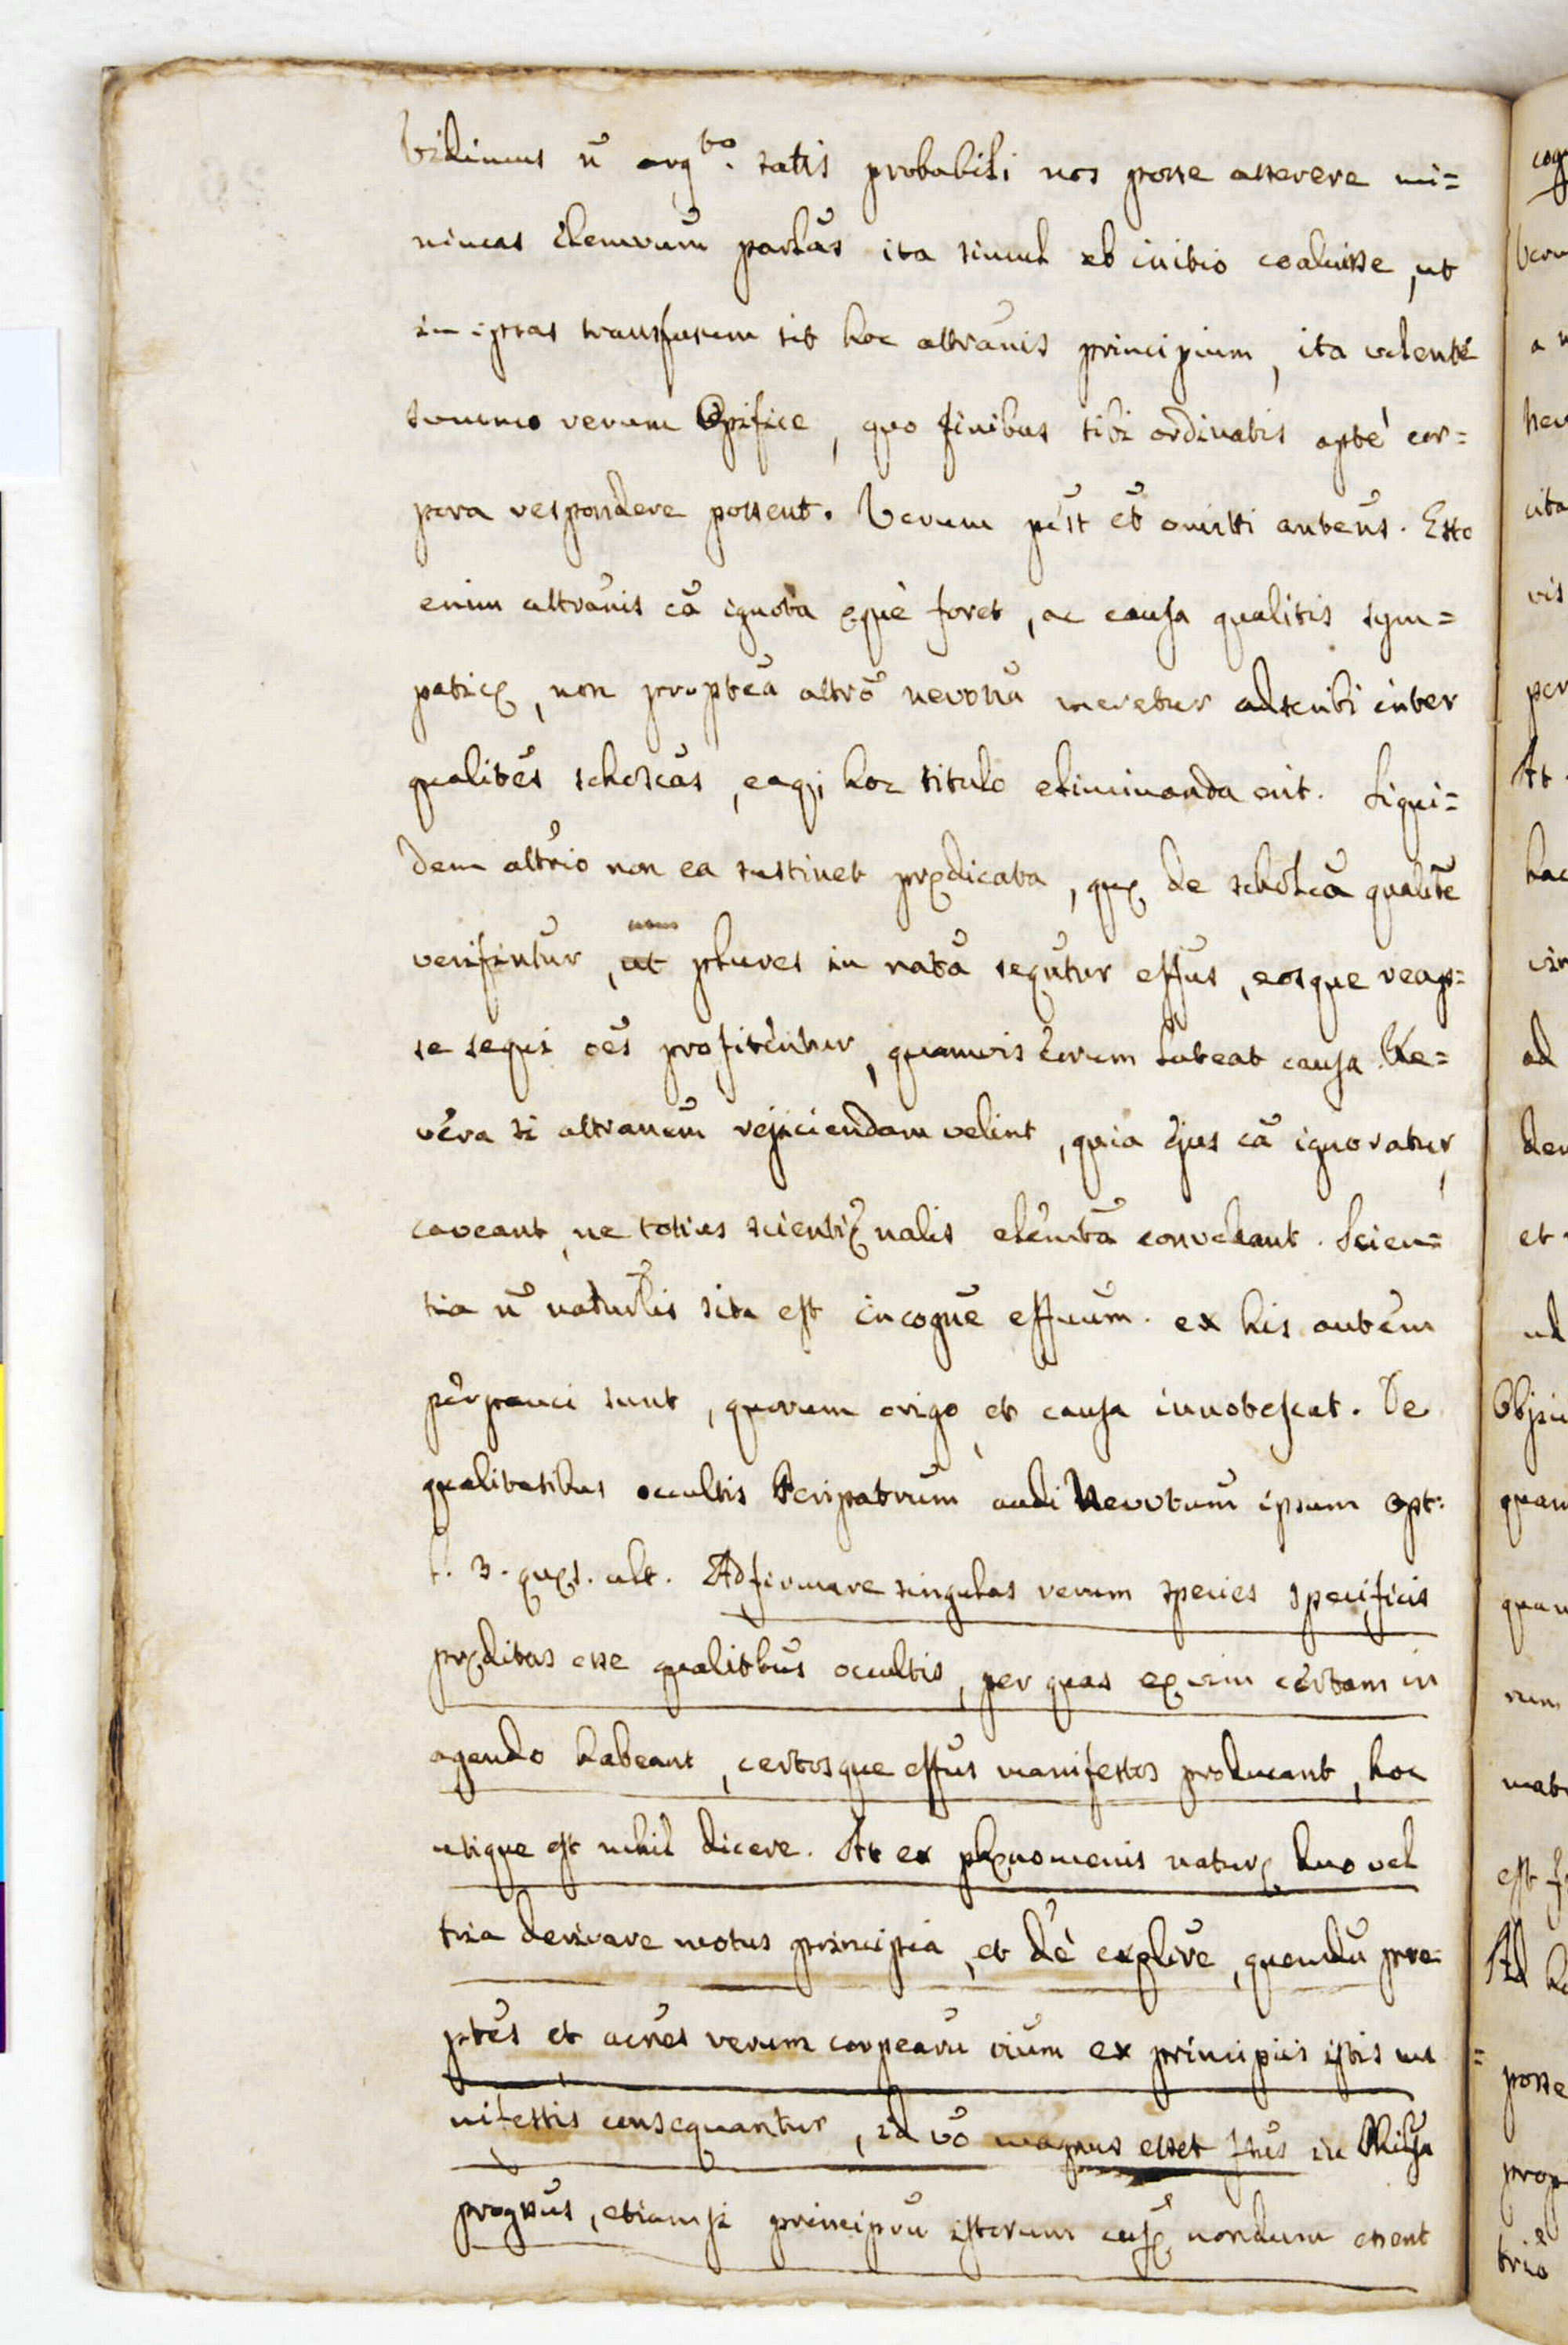 Vidimus n̄ arg^to. satis probabili nos posse asserere mi=
nimas elemenūm partās ita simul ab initio coaluisse, ut
in ipsas transfusum sit hoc attrānis principium, ita volente
summo rerum Opifice, quo finibus sibi ordinatis aptè cor=
pora respondere possent. Verum pōst et̄ omitti autenūs. Esto
enim attrānis cā ignota ęquè foret, ac causa qualitīs sym=
paticę, non proptēā attrō nevonā meretur adscribi inter
qualitēs scholcās, eaq; hoc titulo eliminanda erit. Siqui=
dem attrīo non ea sustinet prędicata, quę de scholcā qualitē
verifintūr, ut nam plures in natā sequtūr effūs, eosque reap=
se sequi oēs profitēntur, quamvis eorum lateat causa. Re=
vēra si attranēm rejiciendam velint, quia ejus cā ignoratur,
caveant, ne totius scientię nalis elemtā convellant. Scien=
tia n̄ naturlis sita est in cogne effuūm. ex his autem
pērpauci sunt, quorum origo, et causa innotescat. De
qualitatibus occultis Peripatrūm audi Nevvtonūm ipsum Opt:
l. 3. quęs. ult. Adfirmare singulas rerum species specificis
pręditas esse qualitbūs occultis, per quas eę vim certam in
agendo habeant, certosque effūs manifestos producant, hoc
utique est nihil dicere. At ex phęnomenis naturę duo vel
tria derivare motus principia, et dē explire, quemdū pro=
ptēs et acnēs rerum corpearū oīum ex principiis istis ma
nifestis consequantur, id vō magnus esset ftūs in Philsa
progrsūs, etiamsi principrū istorum causę nondum essent